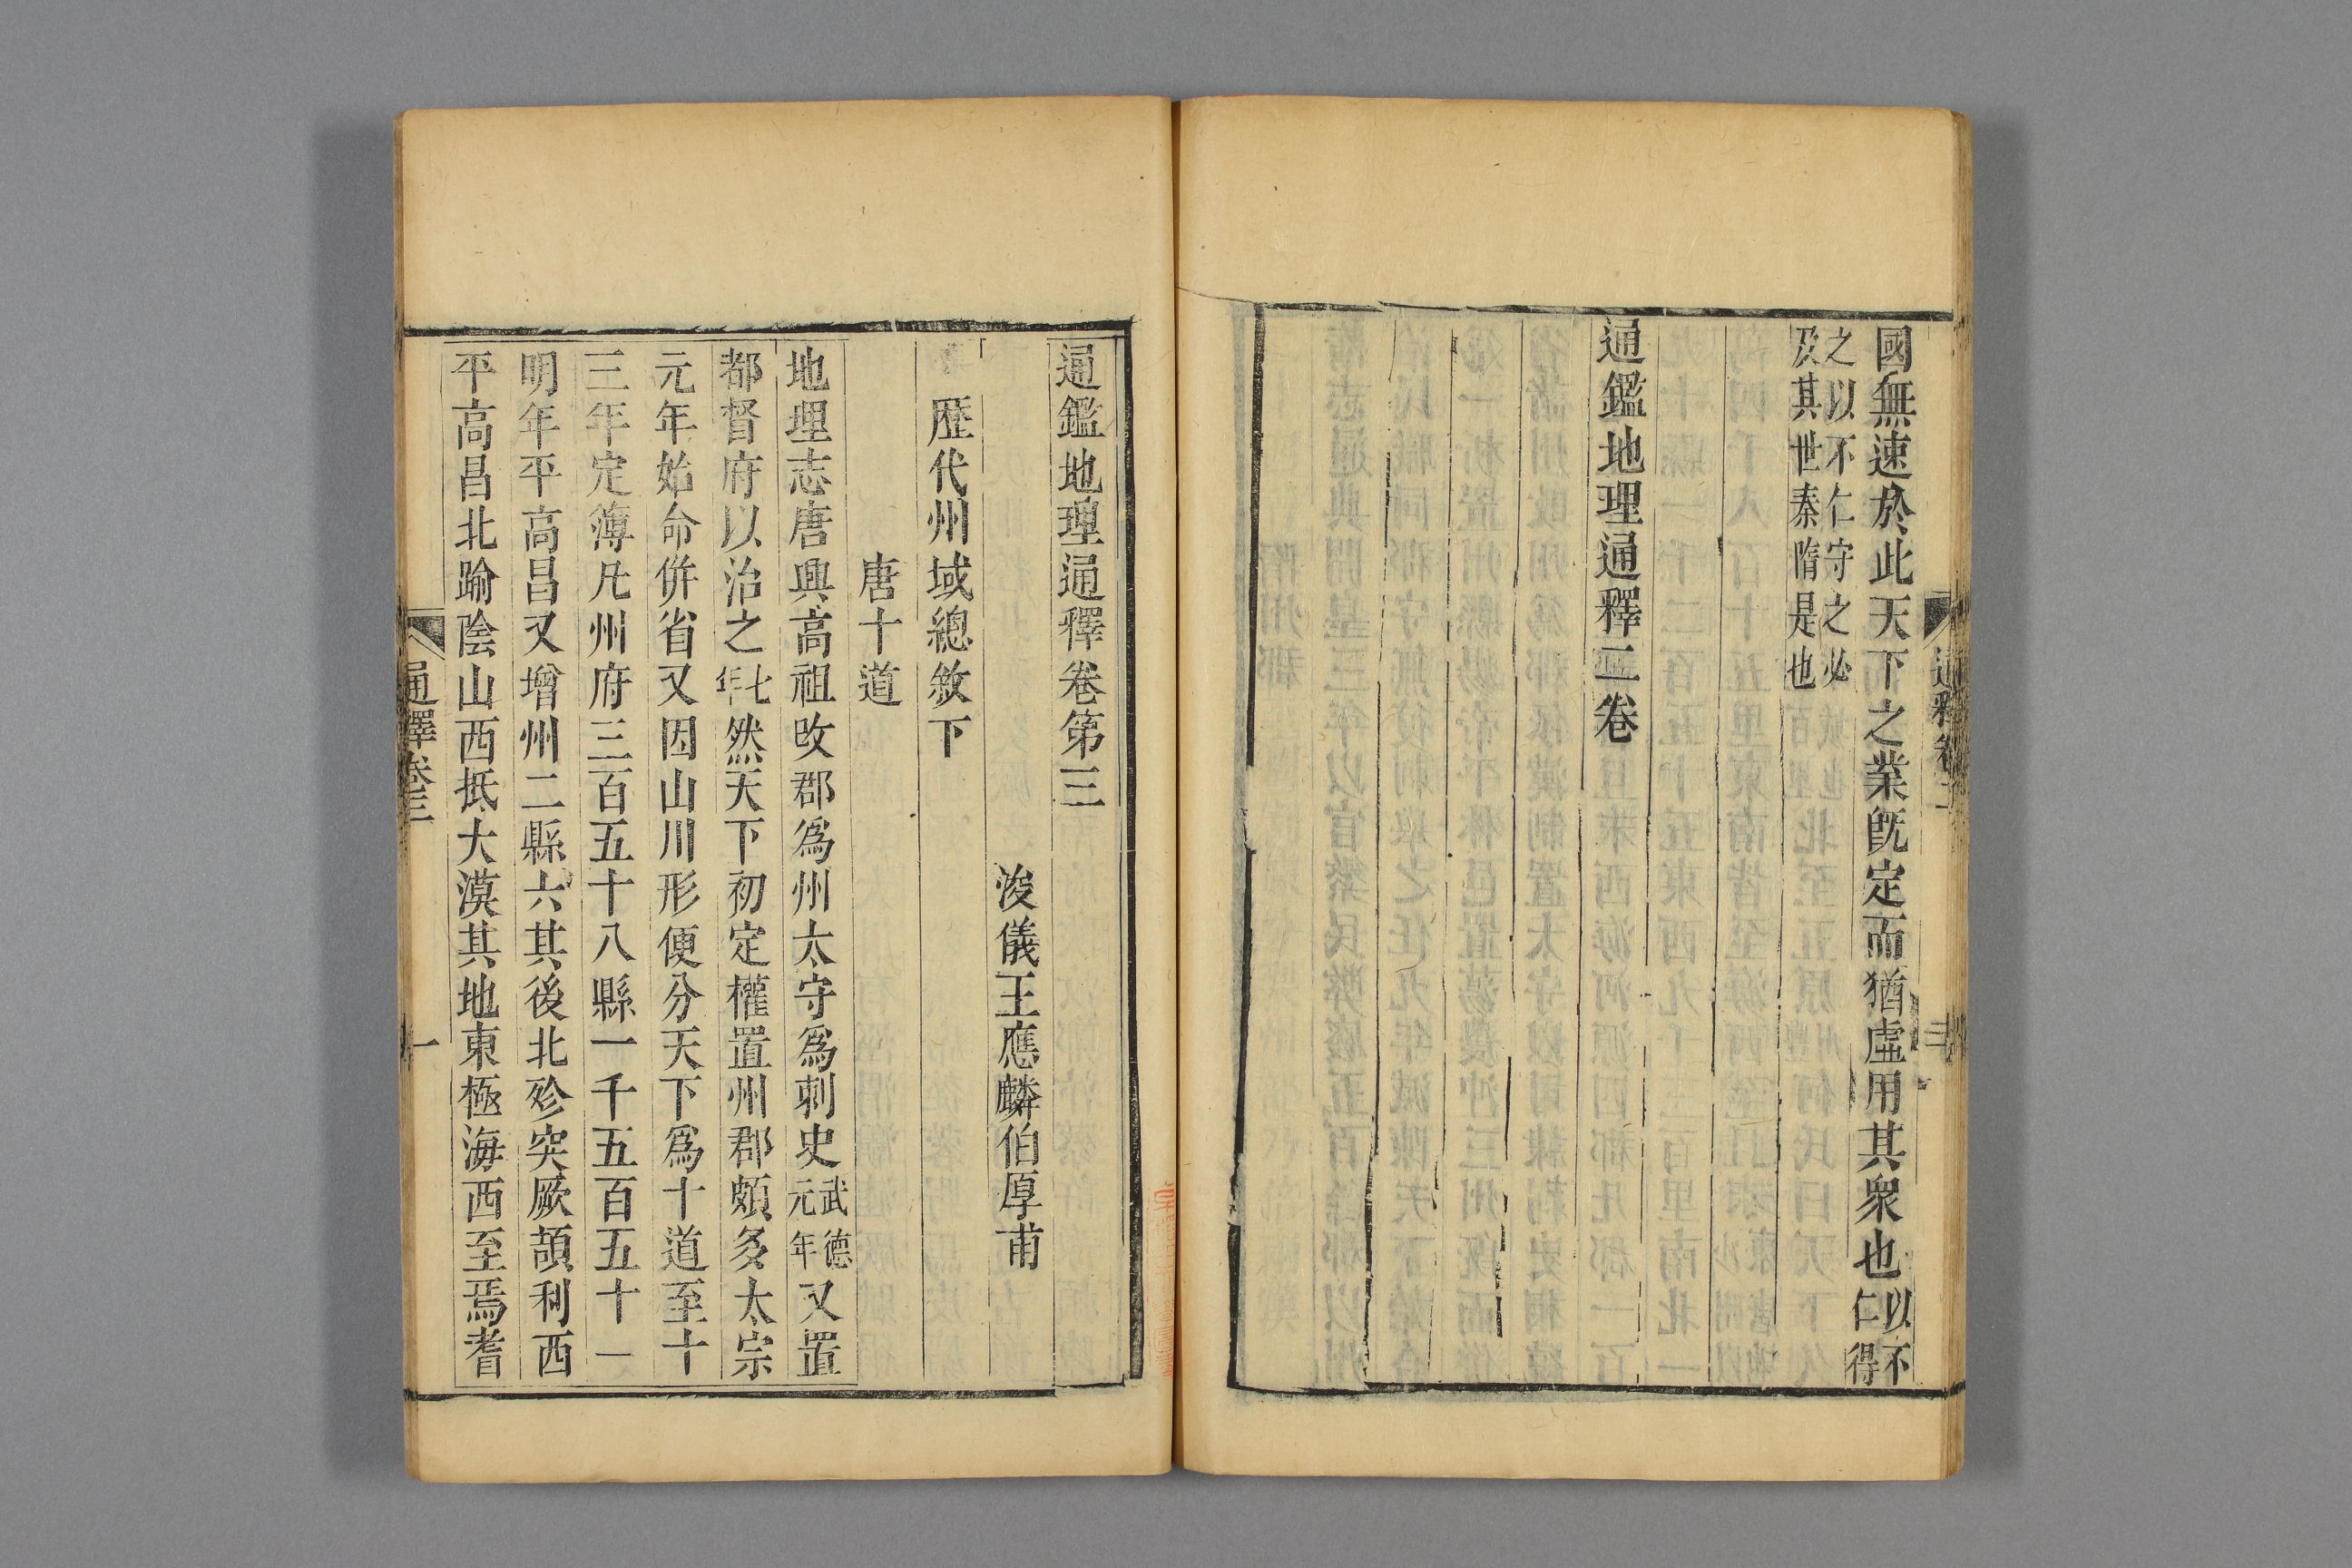 國無速於此天下之業旣定而猶虛用其衆也以不仁得
之以不仁守之必
及其世秦隋是也
通鑑地理通釋二卷
通釋卷二
通鑑地理通釋卷第三
浚儀王應麟伯厚甫
歷代州域總敘下
唐十道
地理志唐興高祖改郡爲州太守爲刺史武德元年又置
都督府以治之七年然天下初定權置州郡頗多太宗
元年始命併省又因山川形便分天下爲十道至十
三年定簿凡州府三百五十八縣一千五百五十一
明年平高昌又增州二縣六其後北殄突厥頡利西
平高昌北踰陰山西抵大漠其地東極海西至焉耆
通釋卷三
一